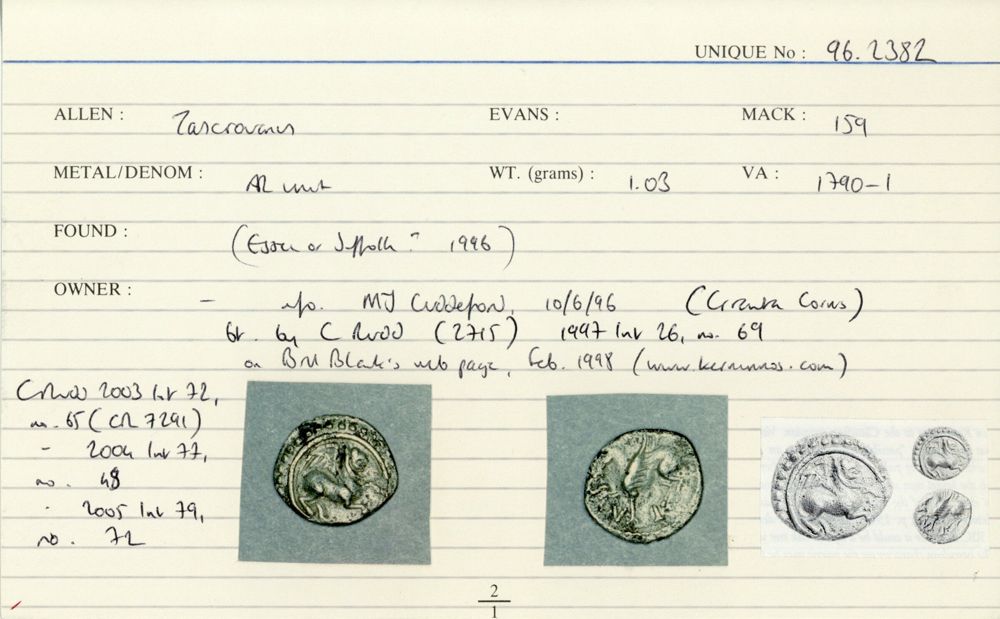 UNIQUE No : 96.2382
ALLEN : Tasciovanus EVANS : MACK : 159
METAL/DENOM : AR unit WT. (grams) : 1.03 VA : 1790-1
FOUND : (Essex or Suffolk? 1996)
OWNER : - info. MJ Cuddeford, 10/6/96 (Granta Coins)
bt. by C Rudd (2715) 1997 list 26, no. 69
on Bill Blank's web page, Feb. 1998 (www.kernunnos.com)
C Rudd 2003 list 72,
no. 65 (CR 7291)
- 2004 list 77,
no. 48
- 2005 list 79,
no. 72
2
1